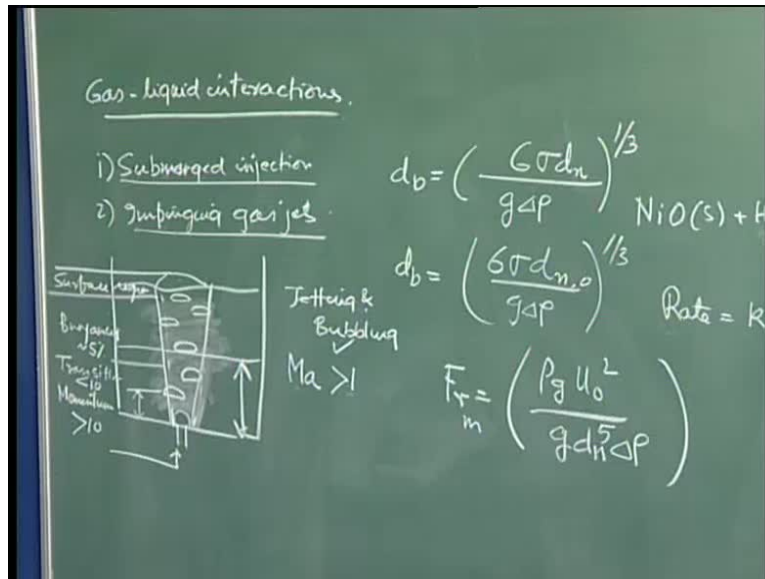 Gas-liquid interactions.
1) Submerged injection
2) Impinging gas jet.
Surface region
Buoyancy
~5%
Transition
<10
Momentum
>10
Jetting &
Bubbling
✓
Ma >1
d_b = (6σd_n / gΔρ)^1/3
d_b = (6σd_n,o / gΔρ)^1/3
Fr_m = (ρ_g u_o^2 / g d_n^5 Δρ)
NiO(s) + H
Rate = k